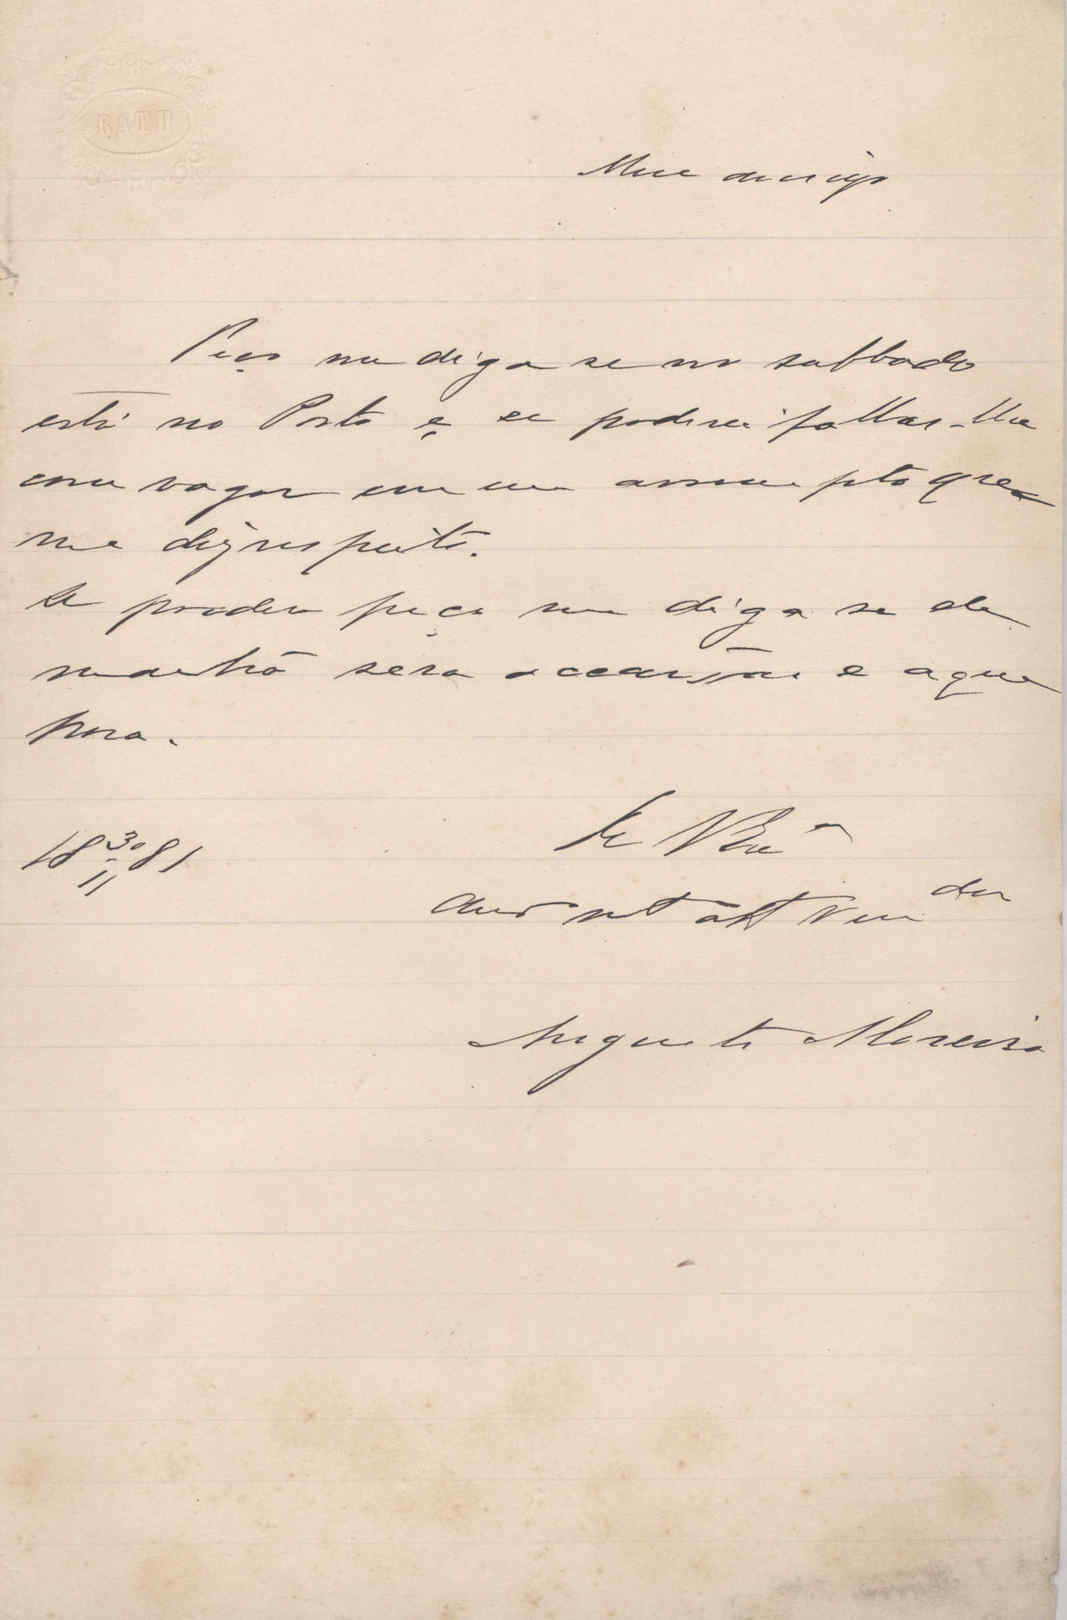 BATH
Meu amigo
Peço me diga se no sabbado
está no Porto e se poderei fallar-lhe
com vagar em um assumpto que
me diz respeito.
Se poder peço me diga se de
manhã sera occasião e a que
hora.
18 30/11 81
De V Exª
Amº mtº attº Ven dor
Augusto Moreira